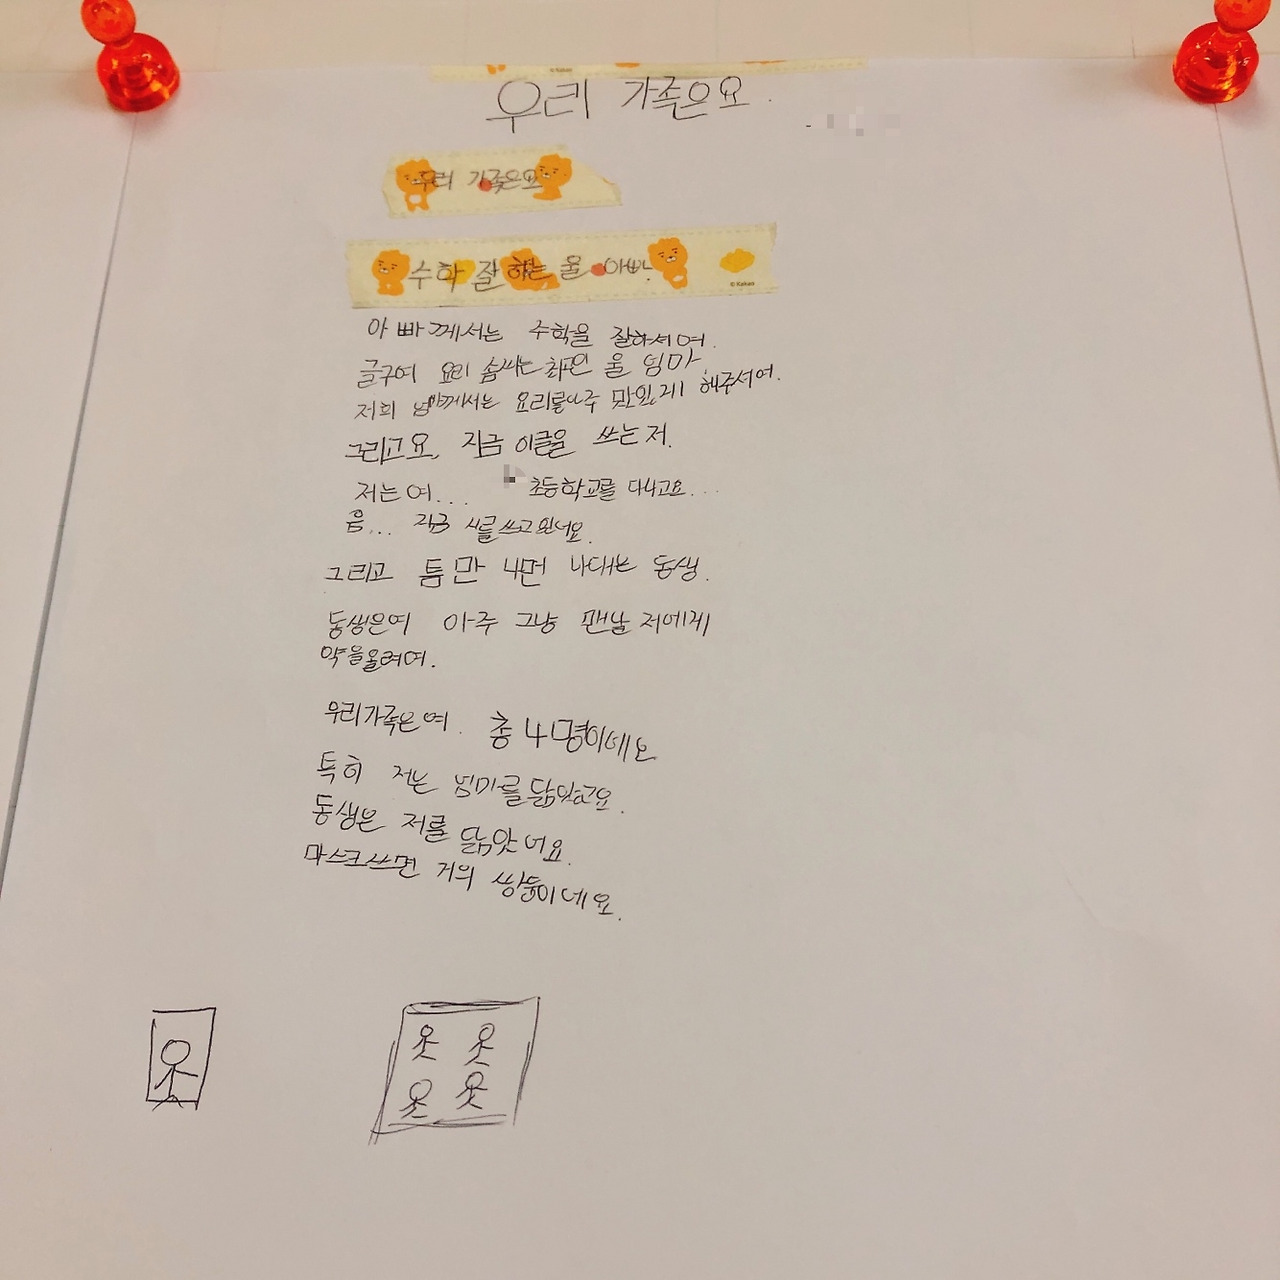 © Kakao
우리 가족은요.
우리 가족은요
수학 잘하는 울 아빠.
© Kakao
아빠께서는 수학을 잘하셔여.
글구여 요리 솜씨는 최고인 울 엄마
저희 엄마께서는 요리를 아주 맛있게 해주셔여.
그리고요, 지금 이글을 쓰는 저.
저는여... 초등학교를 다니고요...
음... 지금 시를 쓰고 있네요.
그리고 틈만 나면 나대는 동생.
동생은여 아주 그냥 맨날 저에게
약을 올려여.
우리가족은여. 총 4명이네요
특히 저는 엄마를 닮았고요.
동생은 저를 닮앗어요.
마스크쓰면 거의 쌍둥이네요.